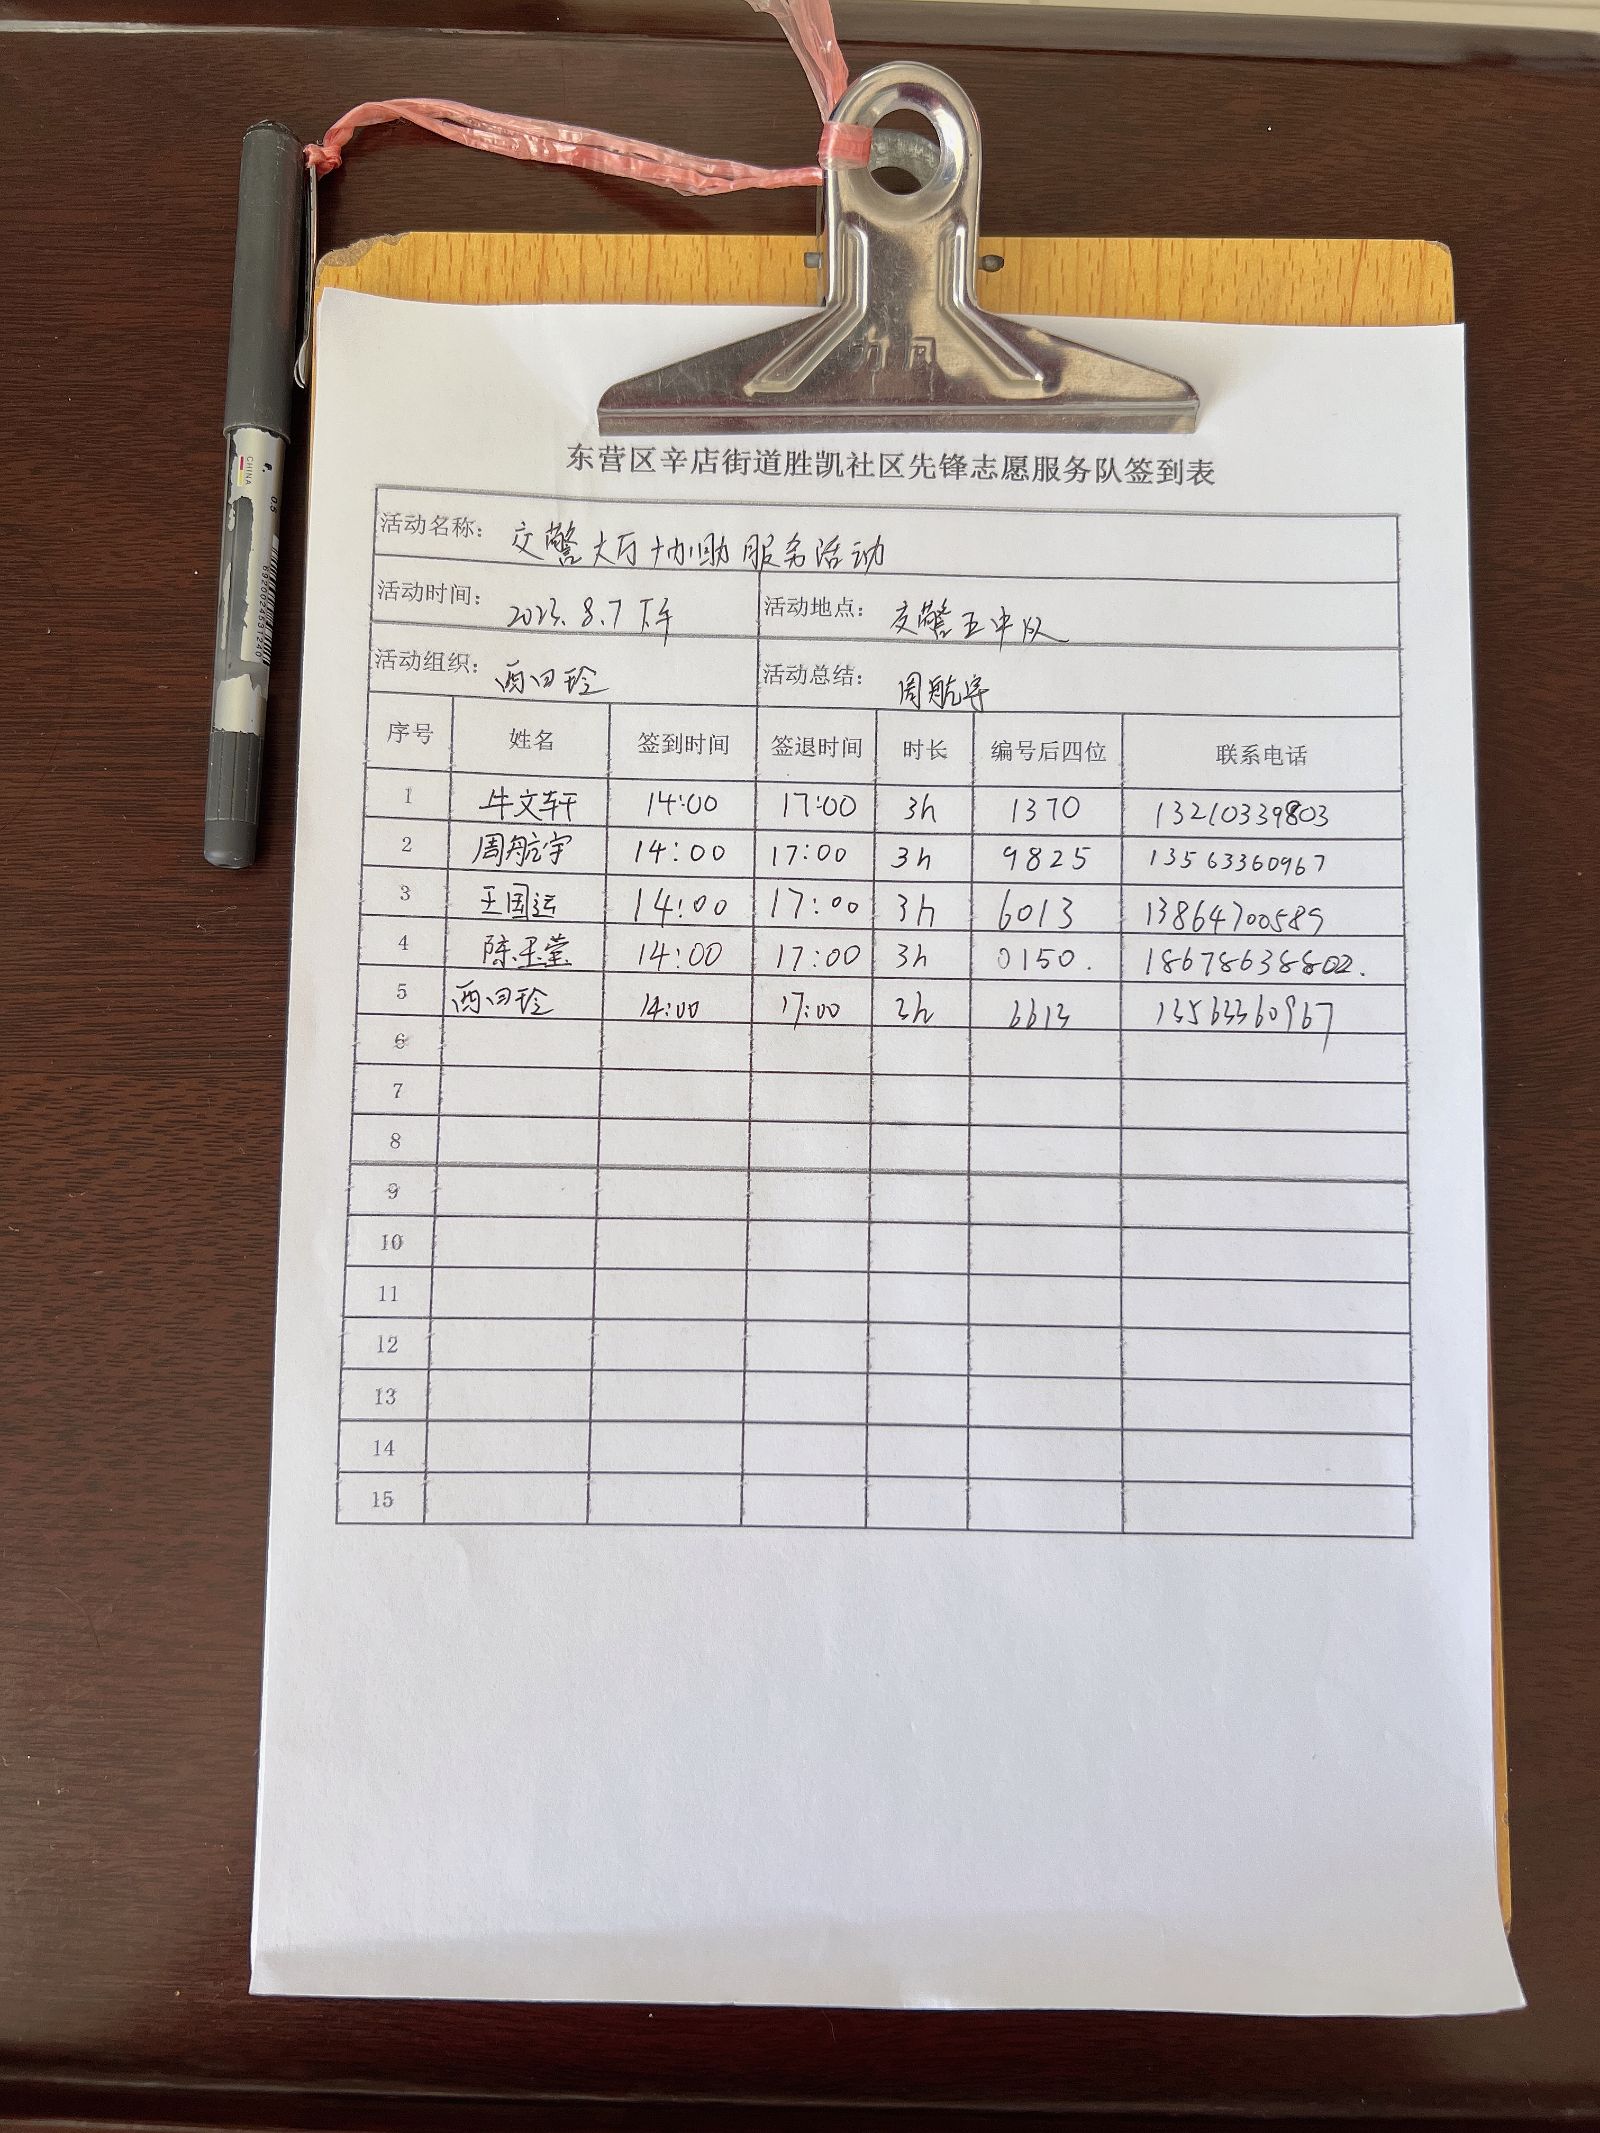 力冈
CHINA
0.5
6920024531240
东营区辛店街道胜凯社区先锋志愿服务队签到表
活动名称： 交警大厅协助服务活动
活动时间： 2023.8.7下午 活动地点： 交警五中队
活动组织： 西田玲 活动总结： 周航宇
序号 姓名 签到时间 签退时间 时长 编号后四位 联系电话
1 牛文轩 14:00 17:00 3h 1370 13210339803
2 周航宇 14:00 17:00 3h 9825 13563360967
3 王国运 14:00 17:00 3h 6013 13864700589
4 陈玉莹 14:00 17:00 3h 0150. 18678638802.
5 西田玲 14:00 17:00 3h 6613 13563360967
6
7
8
9
10
11
12
13
14
15